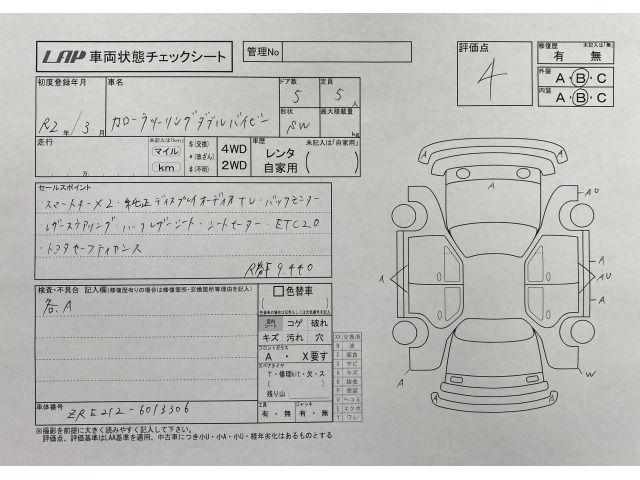 LAA 車両状態チェックシート
管理No
評価点
4
修復歴 未記入は「無」
有 無
外装 A・B・C
内装 A・B・C
初度登録年月
R2年/3月
車名
カローラツーリング ダブルバイビー
ドア数
5
定員
5人
形状
SW
最大積載量
kg
走行
未記入は「km」
マイル
km
万
$(交換)
*(改ざん)
#(不明)
4WD
2WD
車歴 未記入は「自家用」
レンタ
自家用
セールスポイント
・スマートキーX2・純正ディスプレイオーディオ TV・バックモニター
・レザーステアリング・ハーフレザーシート・シートヒーター・ETC2.0
・トヨタセーフティセンス
R券¥9,440
検査・不具合 記入欄(修復歴有りの場合は修復箇所・交換箇所等理由を記入)
各A
色替車
室内 シート
コゲ 破れ
キズ 汚れ 穴
フロントガラス
A ・ X要す
スペアタイヤ
T・修理kit・欠・ス
残り山
工具
有・無
ジャッキ
有・無
XX 交換済
W 波
C 腐食
S サビ
A キズ
B 鈑金
P 塗装
U ヘコミ
E エクボ
Y ワレ
車体番号
ZRE212-6013306
※撮影を前提に大きく読みやすく記入して下さい。
評価点、評価基準はLAA基準を適用、中古車につき小U・小A・小U・経年劣化はあるものとする
A
A
A
AU
A
A
AU
A
A
W
A
A